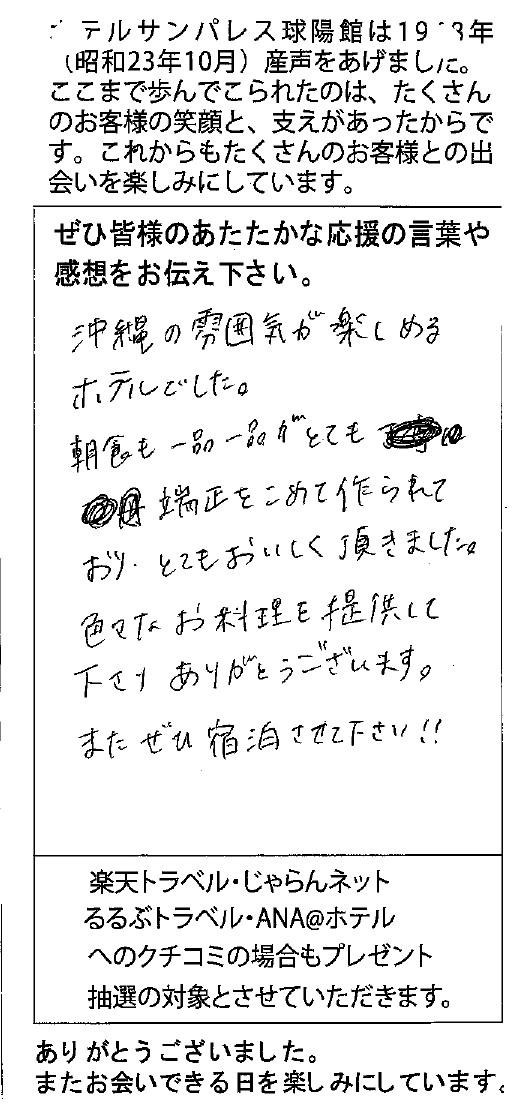 テルサンパレス球陽館は19 8年
（昭和23年10月）産声をあげました。
ここまで歩んでこられたのは、たくさん
のお客様の笑顔と、支えがあったからで
す。これからもたくさんのお客様との出
会いを楽しみにしています。
ぜひ皆様のあたたかな応援の言葉や
感想をお伝え下さい。
沖縄の雰囲気が楽しめる
ホテルでした。
朝食も一品一品がとても
端正をこめて作られて
おり、とてもおいしく頂きました。
色々なお料理を提供して
下さりありがとうございます。
またぜひ宿泊させて下さい!!
楽天トラベル・じゃらんネット
るるぶトラベル・ANA@ホテル
へのクチコミの場合もプレゼント
抽選の対象とさせていただきます。
ありがとうございました。
またお会いできる日を楽しみにしています。